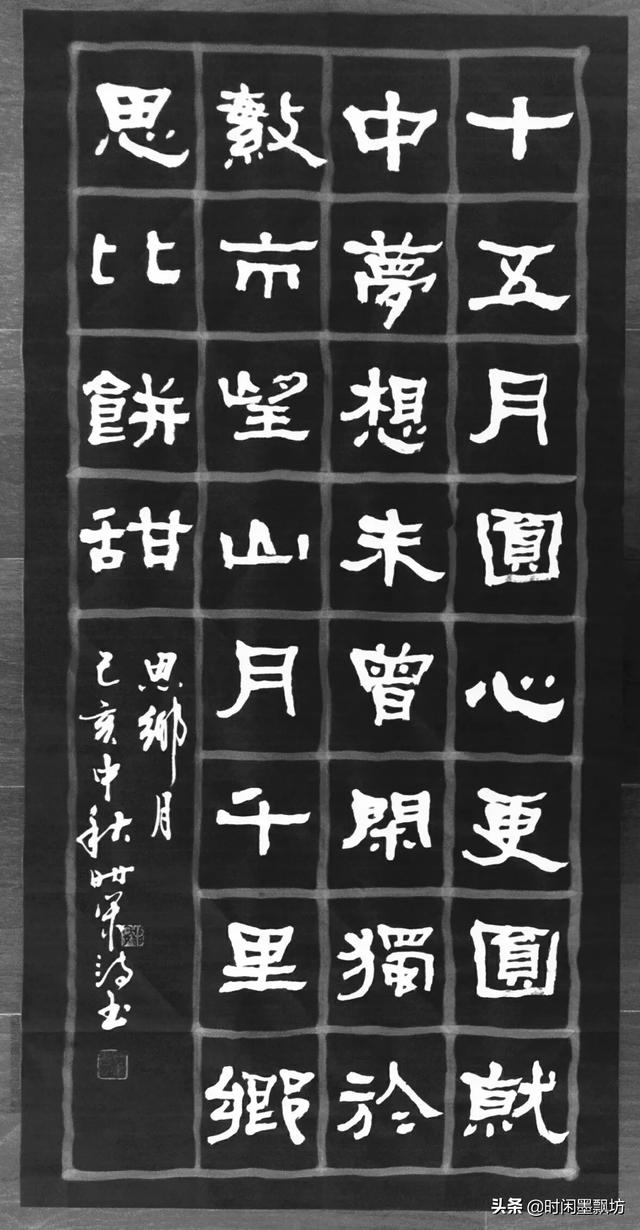 十五月圓心更圓就
中夢想未曾閑獨於
繁市望山月千里鄉
思比餅甜
思鄉月
己亥中秋
头条 @时闲墨飘坊